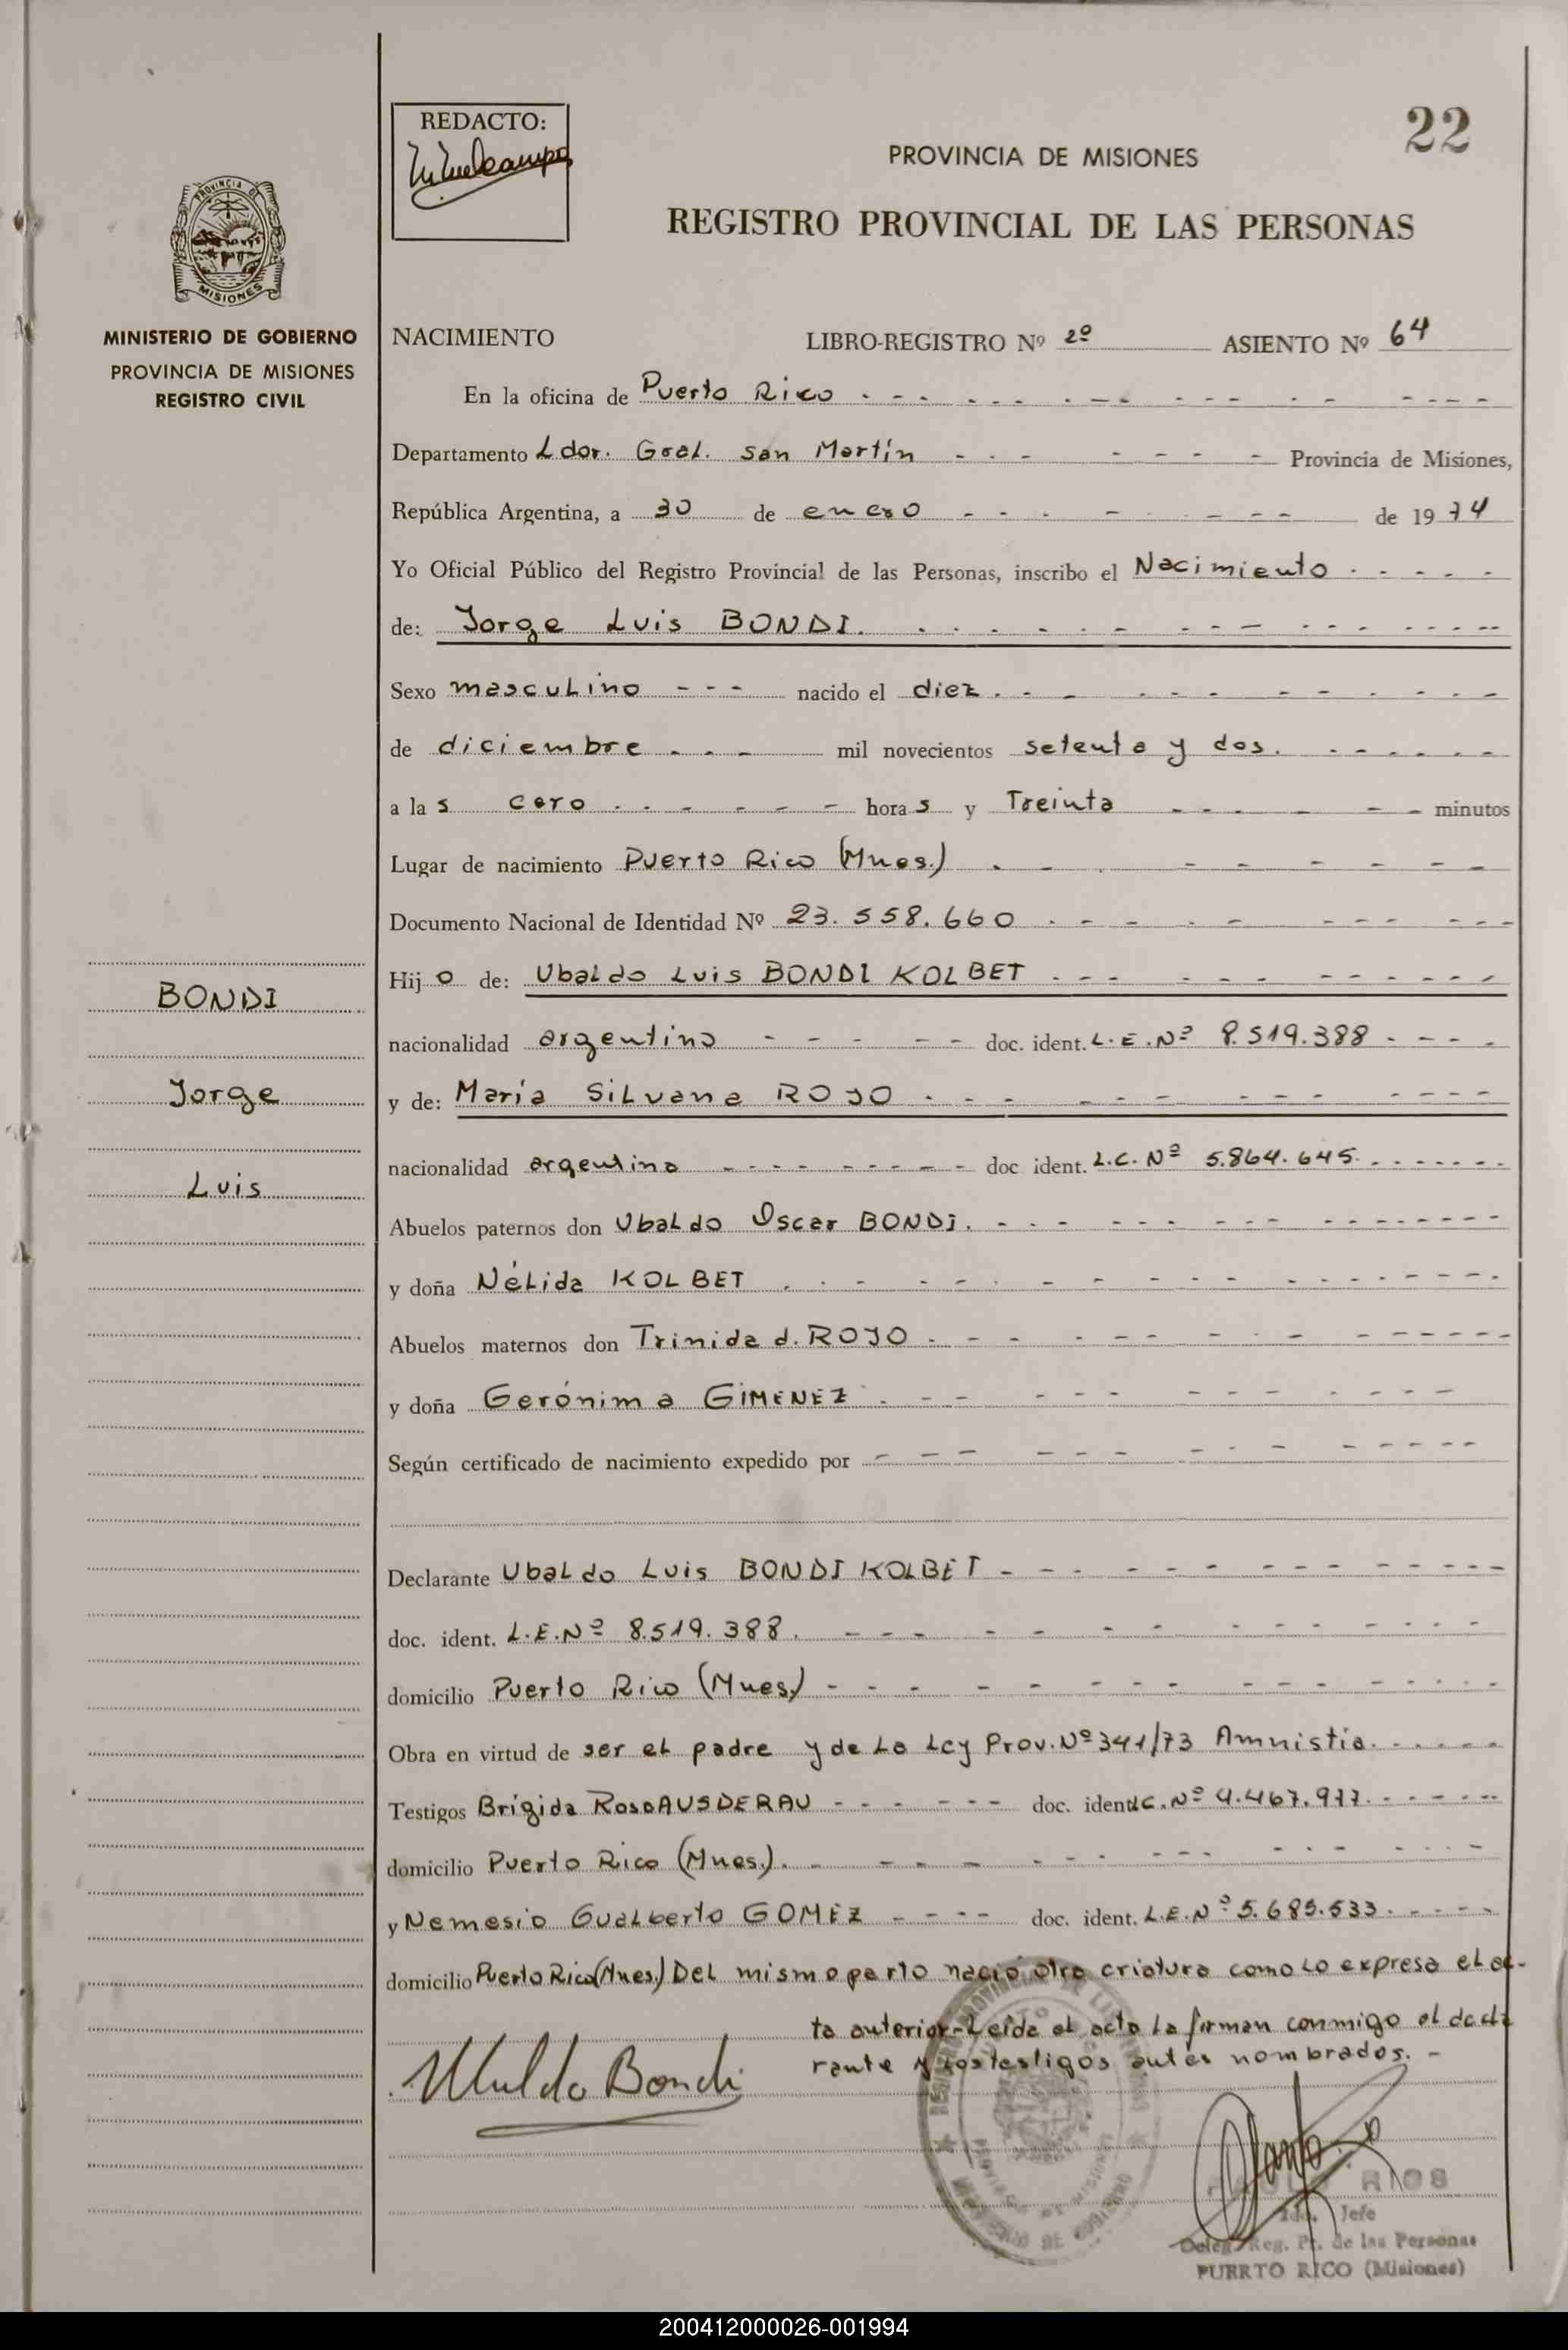 22
REDACTO:
PROVINCIA DE MISIONES
REGISTRO PROVINCIAL DE LAS PERSONAS
PROVINCIA DE
MISIONES
MINISTERIO DE GOBIERNO
PROVINCIA DE MISIONES
REGISTRO CIVIL
NACIMIENTO LIBRO-REGISTRO Nº 2º ASIENTO Nº 64
En la oficina de Puerto Rico
Departamento Ldor. Gral. San Martín Provincia de Misiones,
República Argentina, a 30 de enero de 1974
Yo Oficial Público del Registro Provincial de las Personas, inscribo el Nacimiento
de: Jorge Luis BONDI.
Sexo masculino nacido el diez.
de diciembre mil novecientos setenta y dos.
a las cero horas y Treinta minutos
Lugar de nacimiento Puerto Rico (Mnes.)
Documento Nacional de Identidad Nº 23.558.660
Hijo de: Ubaldo Luis BONDI KOLBET
nacionalidad argentino doc. ident. L.E.Nº 8.519.388
y de: María Silvana ROJO
nacionalidad argentina doc ident. L.C. Nº 5.864.645.
Abuelos paternos don Ubaldo Oscar BONDI.
y doña Nélida KOLBET
Abuelos maternos don Trinidad. ROJO
y doña Gerónima GIMENEZ
Según certificado de nacimiento expedido por
Declarante Ubaldo Luis BONDI KOLBET
doc. ident. L.E.Nº 8.519.388.
domicilio Puerto Rico (Mnes.)
Obra en virtud de ser el padre y de La Ley Prov. Nº 341/73 Amnistia.
Testigos Brígida Rosa AUSDERAU doc. ident. L.C. Nº 4.467.977.
domicilio Puerto Rico (Mnes.).
y Nemesio Gualberto GOMEZ doc. ident. L.E.Nº 5.685.533.
domicilio Puerto Rico (Mnes.) Del mismo parto nació otra criatura como Lo expresa el ac-
ta anterior-Leída el acta La firman conmigo el decla
rante y los testigos antes nombrados.-
Ubaldo Bondi
RIOS
Jefe
Deleg. Reg. Pr. de las Personas
PUERTO RICO (Misiones)
BONDI
Jorge
Luis
200412000026-001994